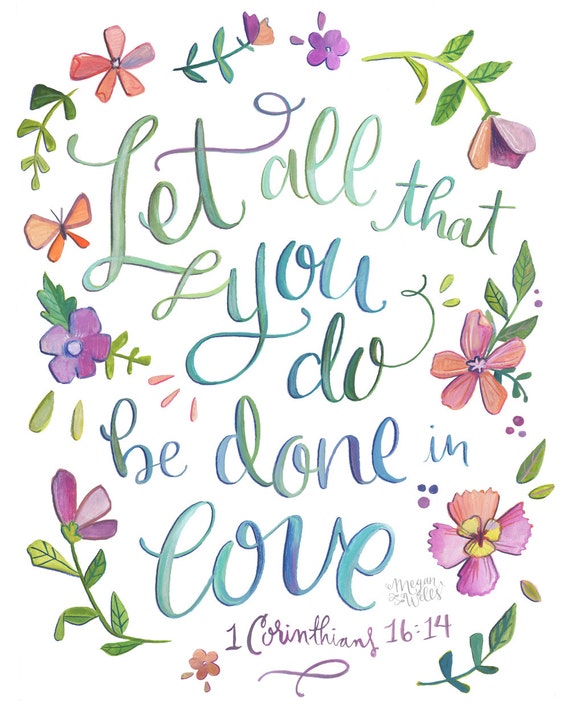 Let all that
you do
be done in
love
Megan
Wells
1 Corinthians 16:14